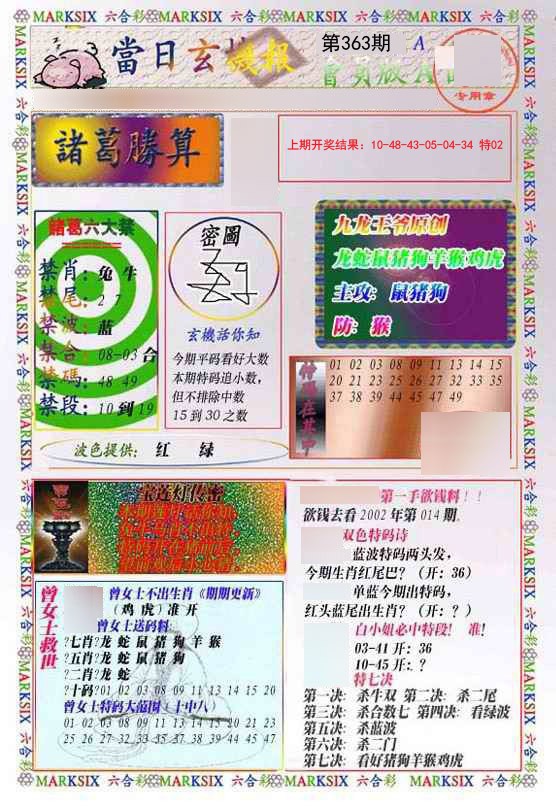 MARKSIX 六合彩 MARKSIX 六合彩 MARKSIX 六合彩 MARKSIX 六合彩 MARKSIX
當日玄機報
第363期
A
會員版A
专用章
諸葛勝算
上期开奖结果：10-48-43-05-04-34 特02
諸葛六大禁
禁肖：兔 牛
禁尾：2 7
禁波：蓝
禁合：08-03合
禁碼：48 49
禁段：10到19
密圖
玄機话你知
今期平码看好大数
本期特码追小数，
但不排除中数
15到30之数
九龙王爷原创
龙蛇鼠猪狗羊猴鸡虎
主攻：鼠猪狗
防：猴
01 02 03 08 09 11 13 14 15
20 21 23 25 26 27 32 33 35
37 38 39 44 45 47 49
波色提供： 红 绿
宝莲灯传密
第一手欲钱料！！
欲钱去看2002年第014期。
双色特码诗
蓝波特码两头发，
今期生肖红尾巴？（开：36）
单蓝今期出特码，
红头蓝尾出生肖？（开：？）
白小姐必中特段！ 准！
03-41开：36
10-45开：？
特七决
第一决：杀牛双 第二决：杀二尾
第三决：杀合数七 第四决：看绿波
第五决：杀蓝波
第六决：杀二门
第七决：看好猪狗羊猴鸡虎
曾女士救世
曾女士不出生肖《期期更新》
（鸡 虎）准开
曾女士送码料：
?七肖?龙 蛇 鼠 猪 狗 羊 猴
?五肖?龙 蛇 鼠 猪 狗
?二肖?龙 蛇
?十码?01 02 03 08 09 11 13 14 15 20
曾女士特码大范围（十中八）
01 02 03 08 09 11 13 14 15 20 21 23
25 26 27 32 33 35 37 38 39 44 45 47
MARKSIX 六合彩 MARKSIX 六合彩 MARKSIX 六合彩 MARKSIX 六合彩 MARKSIX